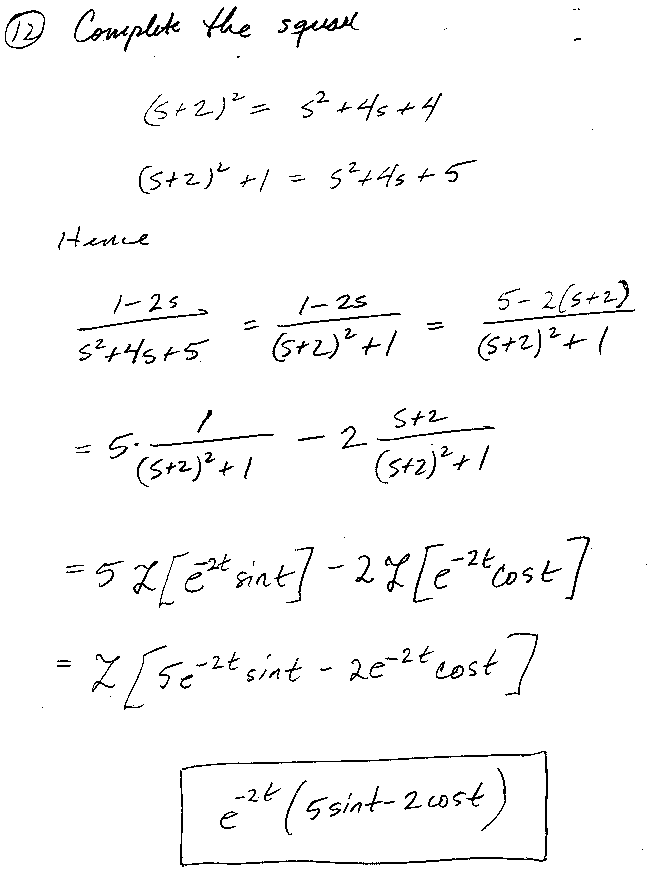 ⑫ Complete the square
(s+2)² = s² + 4s + 4
(s+2)² + 1 = s² + 4s + 5
Hence
(1-2s)/(s²+4s+5) = (1-2s)/((s+2)²+1) = (5-2(s+2))/((s+2)²+1)
= 5 · 1/((s+2)²+1) - 2 (s+2)/((s+2)²+1)
= 5 ℒ[e^{-2t} sint] - 2 ℒ[e^{-2t} cost]
= ℒ[5e^{-2t} sint - 2e^{-2t} cost]
e^{-2t} (5 sint - 2 cost)